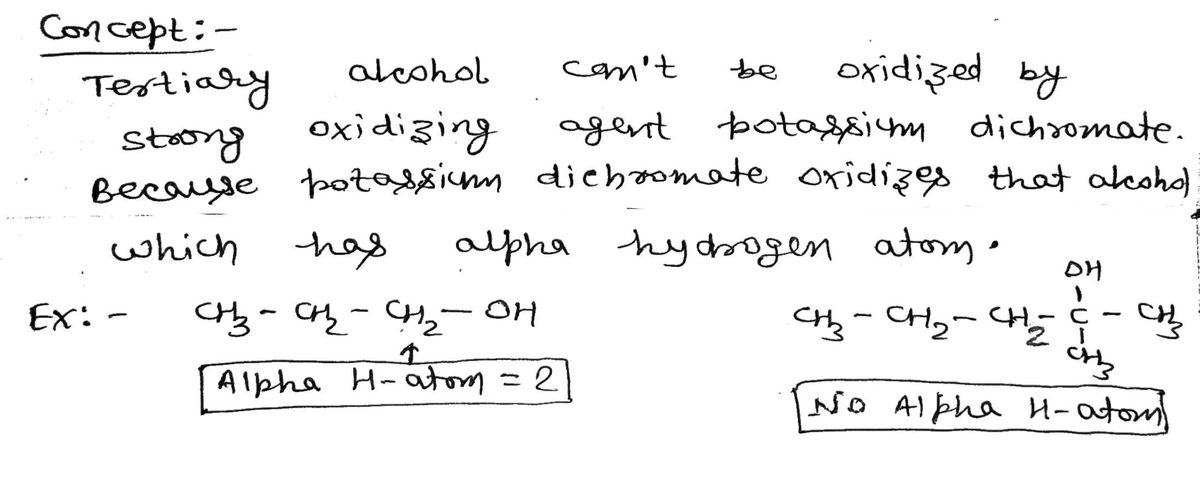 Concept:-
Tertiary alcohol can't be oxidized by
strong oxidizing agent potassium dichromate.
Because potassium dichromate oxidizes that alcohol
which has alpha hydrogen atom.
OH
Ex:- CH3 - CH2 - CH2 - OH CH3 - CH2 - CH2 - C - CH3
CH3
Alpha H-atom = 2
No Alpha H-atom